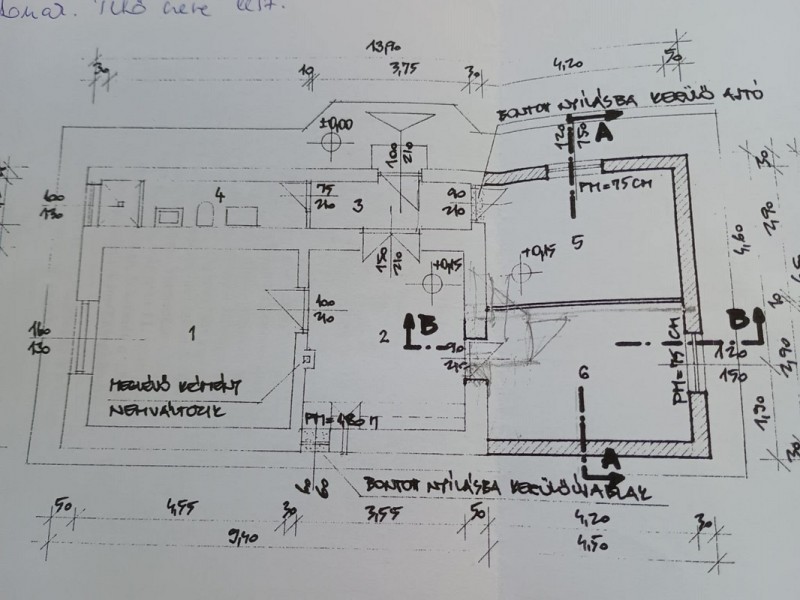 13,90
30
10
3,75
30
4,20
30
BONTOTT NYÍLÁSBA KERÜLŐ AJTÓ
±0,00
A
120
150
100
210
PM=75CM
60
130
4
75
210
3
90
210
5
150
210
+0,15
+0,15
100
210
160
130
1
2
B
90
210
B
PM=75CM
120
150
6
MEGLÉVŐ KÉMÉNY
NEM VÁLTOZIK
A
60
60
BONTOTT NYÍLÁSBA KERÜLŐ ÚJ ABLAK
30
2,90
4,60
10
2,90
1,90
30
50
4,55
30
3,55
50
4,20
30
9,40
4,50